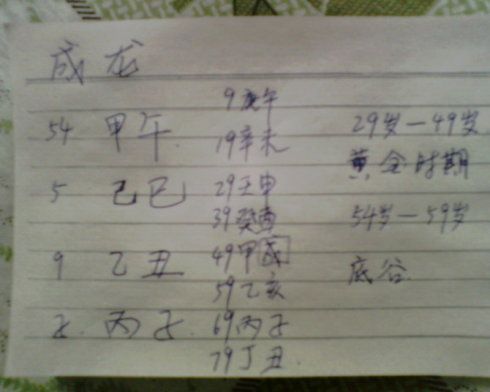 成龙
54 甲午
5 己巳
9 乙丑
子 丙子
9庚午
19辛未
29壬申
39癸酉
49甲戌
59乙亥
69丙子
79丁丑
29岁—49岁
黄金时期
54岁—59岁
底谷